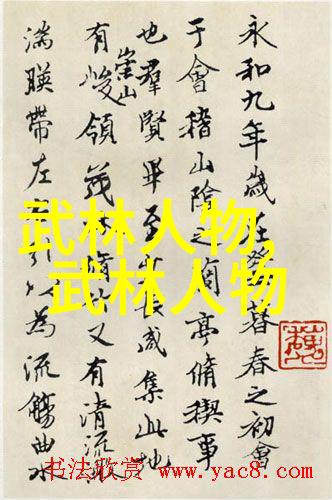 永和九年歲在暮春之初會
于會稽山陰之蘭亭脩禊事
也羣賢畢至長咸集此地
有崇山峻領茂脩竹又有清流激
湍暎帶左引以為流觴曲水
武林人物,
武林人物
书法欣赏 www.yac8.com